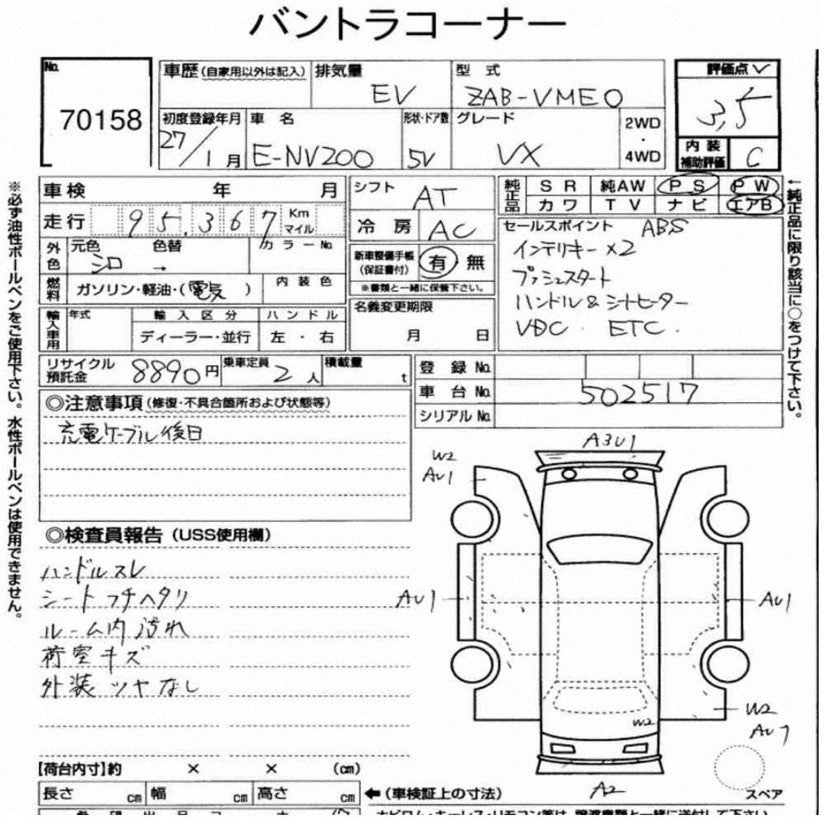 バントラコーナー
No. 70158
車歴(自家用以外は記入) 排気量 EV 型式 ZAB-VME0 評価点 3,5
初度登録年月 27/1月 車名 E-NV200 形状・ドア数 5V グレード VX 2WD・4WD 内装補助評価 C
車検 年 月 シフト AT 純正品 SR 純AW PS PW
走行 95,367 Km マイル 冷房 AC カワ TV ナビ エアB
外色 元色 シロ 色替 → カラーNo. 新車整備手帳(保証書付) 有 無
※書類と一緒に保管下さい。
燃料 ガソリン・軽油・(電気) 内装色 名義変更期限 月 日
輸入車用 年式 輸入区分 ディーラー・並行 ハンドル 左・右
セールスポイント ABS
インテリキー×2
プッシュスタート
ハンドル&シートヒーター
VDC. ETC.
リサイクル預託金 8890円 乗車定員 2人 積載量 t
登録No.
車台No. 502517
シリアルNo.
◎注意事項(修復・不具合箇所および状態等)
充電ケーブル後日
◎検査員報告(USS使用欄)
ハンドルスレ
シートフチヘタリ
ルーム内汚れ
荷室キズ
外装ツヤなし
A3U1
W2
AU1
AU1
AU1
W2
AU7
W2
A2
スペア
【荷台内寸】約 × × (cm)
長さ cm 幅 cm 高さ cm ←(車検証上の寸法)
※必ず油性ボールペンをご使用下さい。水性ボールペンは使用できません。
←純正品に限り該当に○をつけて下さい。